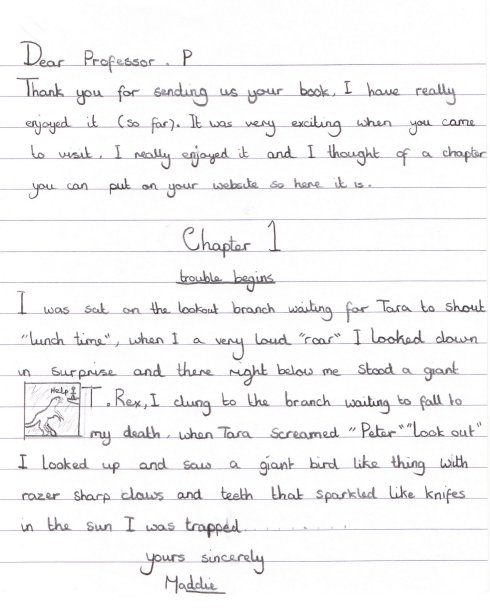 Dear Professor. P
Thank you for sending us your book, I have really
enjoyed it (so far). It was very exciting when you came
to visit, I really enjoyed it and I thought of a chapter
you can put on your website so here it is.
Chapter 1
trouble begins
I was sat on the lookout branch waiting for Tara to shout
"lunch time", when I a very loud "roar" I looked down
in surprise and there right below me stood a giant
Help
T. Rex, I clung to the branch waiting to fall to
my death, when Tara screamed "Peter" "Look out"
I looked up and saw a giant bird like thing with
razer sharp claws and teeth that sparkled like knifes
in the sun I was trapped..........
yours sincerely
Maddie